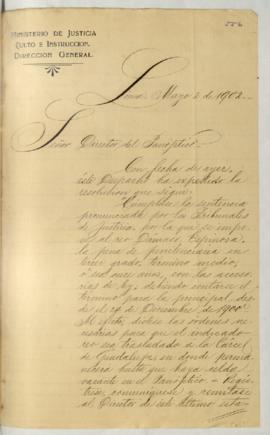 556
MINISTERIO DE JUSTICIA
CULTO E INSTRUCCION.
DIRECCION GENERAL.
Lima, Mayo 2 de 1902.
Señor Director del Panóptico.
Con fecha de ayer,
este Despacho ha expedido la
resolucion que sigue:
"Cúmplase la sentencia
pronunciada por los Tribunales
de Justicia, por la que se impo-
ne al reo Dámaso Espinosa
la pena de penitenciaria en
tercer grado, término medio,
ó sea once años, con las acceso-
rias de ley, debiendo contarse el
término para la principal des-
de el 24 de Diciembre de 1900.
Al efecto, dictese las órdenes ne-
cesarias para que el indicado
reo sea trasladado a la Cárcel
de Guadalupe en donde perma-
necerá hasta que haya celda
vacante en el Panóptico. Regis-
trese, comuníquese y remítase
al Director de este último esta-